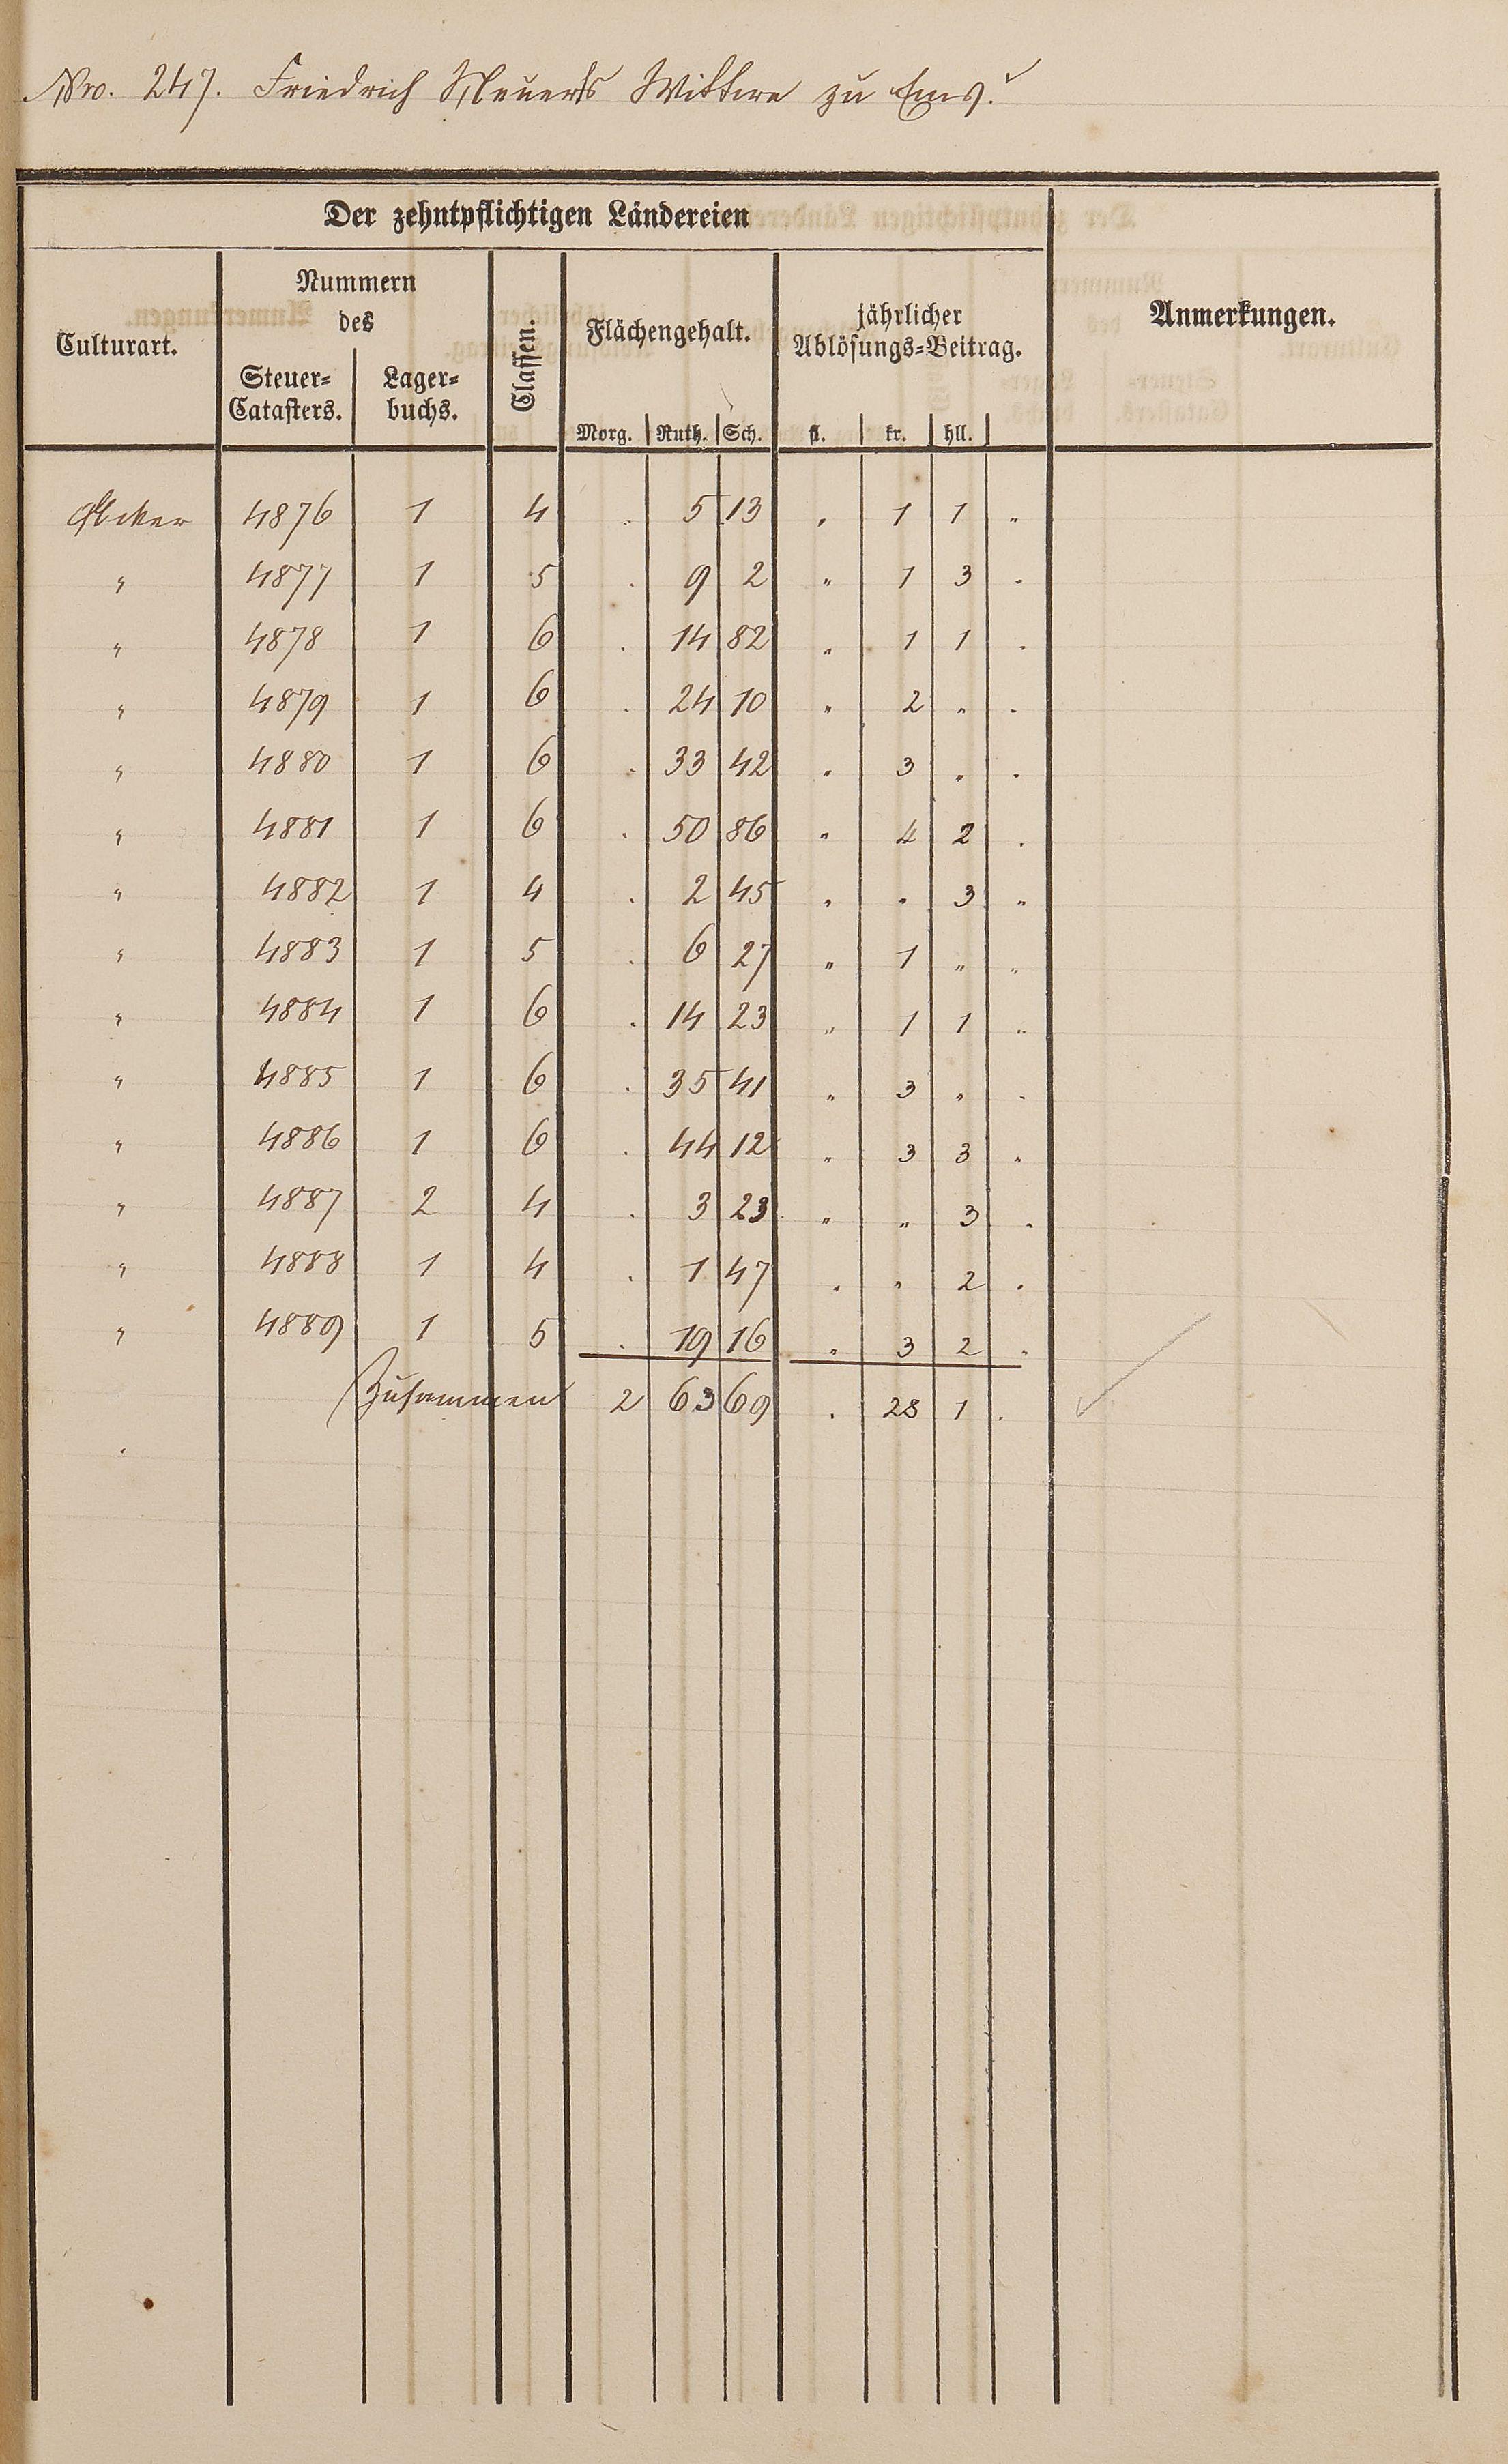 Nro. 247. Friedrich Meuerts Wittwe zu Ems.
Der zehntpflichtigen Ländereien
Culturart. Nummern des Steuer-Catasters. Lager-buchs. Classen. Flächengehalt. jährlicher Ablösungs-Beitrag. Anmerkungen.
Morg. Ruth. Sch. fl. kr. hll.
Acker 4876 1 4 . 5 13 . 1 1 "
" 4877 1 5 . 9 2 " 1 3 .
" 4878 1 6 . 14 82 " 1 1 .
" 4879 1 6 . 24 10 " 2 " .
" 4880 1 6 . 33 42 " 3 " .
" 4881 1 6 . 50 86 " 4 2 .
" 4882 1 4 . 2 45 " " 3 "
" 4883 1 5 . 6 27 " 1 " "
" 4884 1 6 . 14 23 " 1 1 "
" 4885 1 6 . 35 41 " 3 " .
" 4886 1 6 . 44 12 " 3 3 "
" 4887 2 4 . 3 23 " " 3 .
" 4888 1 4 . 1 47 . " 2 .
" 4889 1 5 . 19 16 " 3 2 "
Zusammen 2 63 69 . 28 1 .